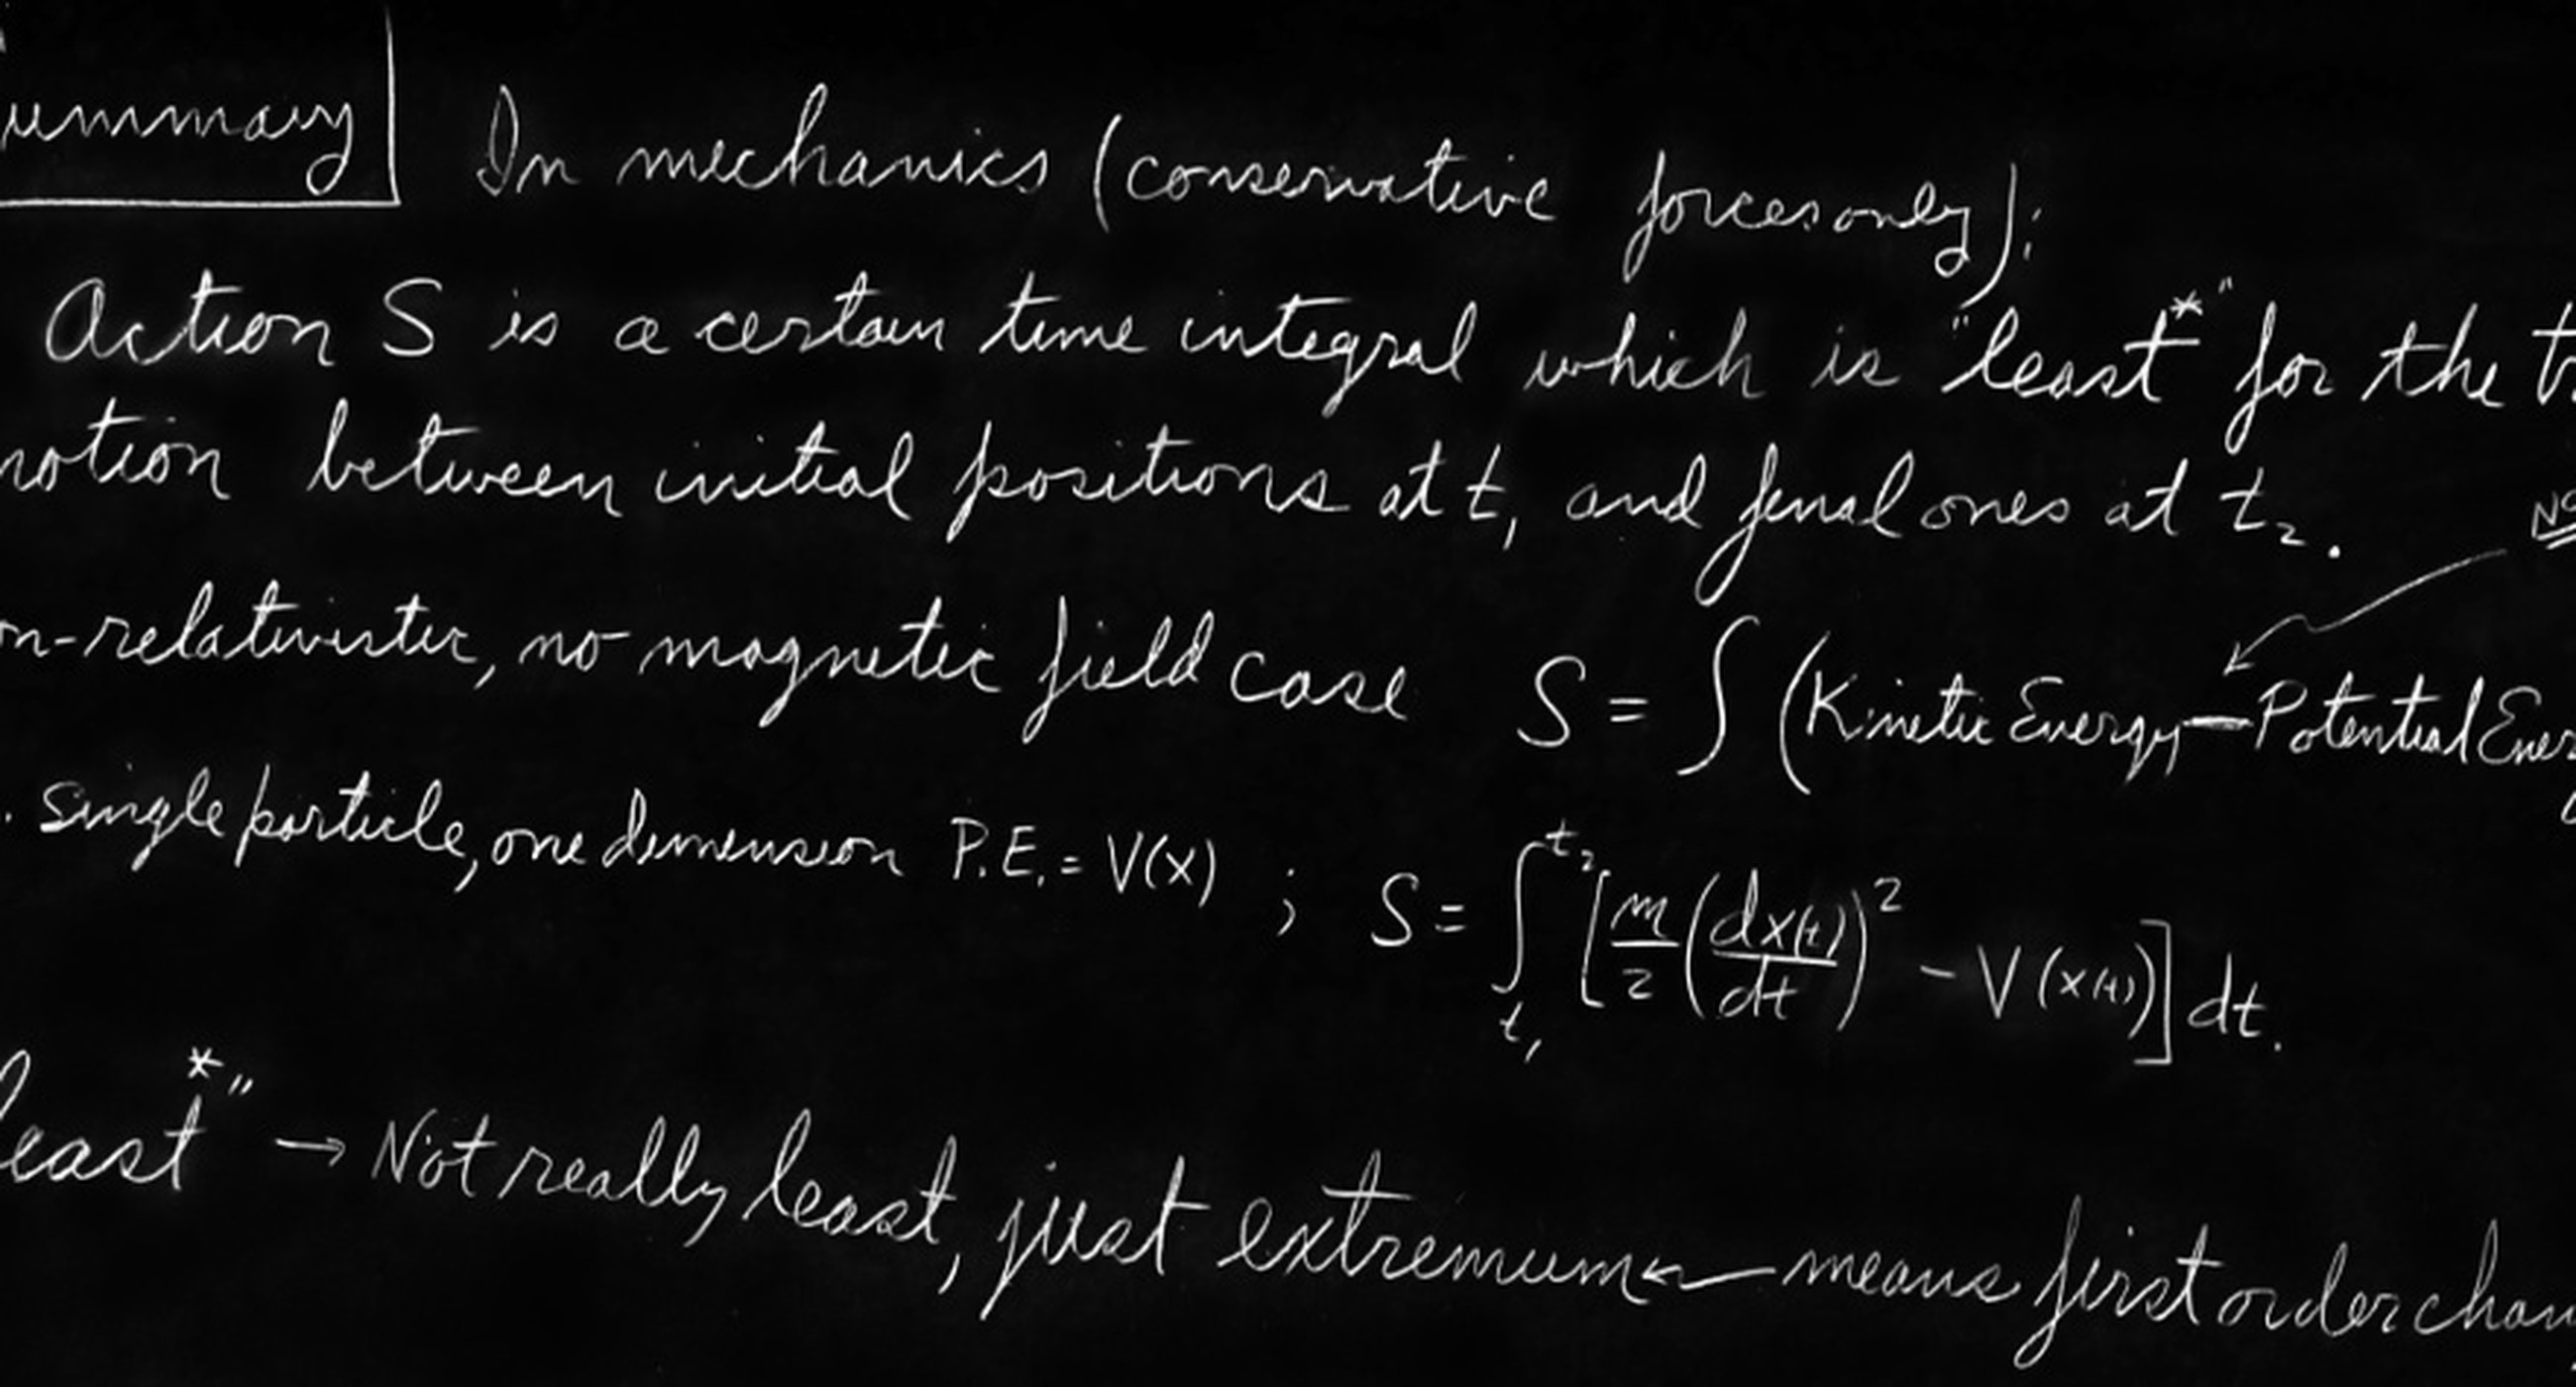 ummary In mechanics (conservative forces only):
Action S is a certain time integral which is "least*" for the t
notion between initial positions at t₁ and final ones at t₂. No
n-relativistic, no magnetic field case S = ∫ (Kinetic Energy — Potential Ener
. single particle, one dimension P.E. = V(x) ; S = ∫_{t₁}^{t₂} [m/2 (dx(t)/dt)² - V(x(t))] dt.
least*" → Not really least, just extremum ← means first order chan